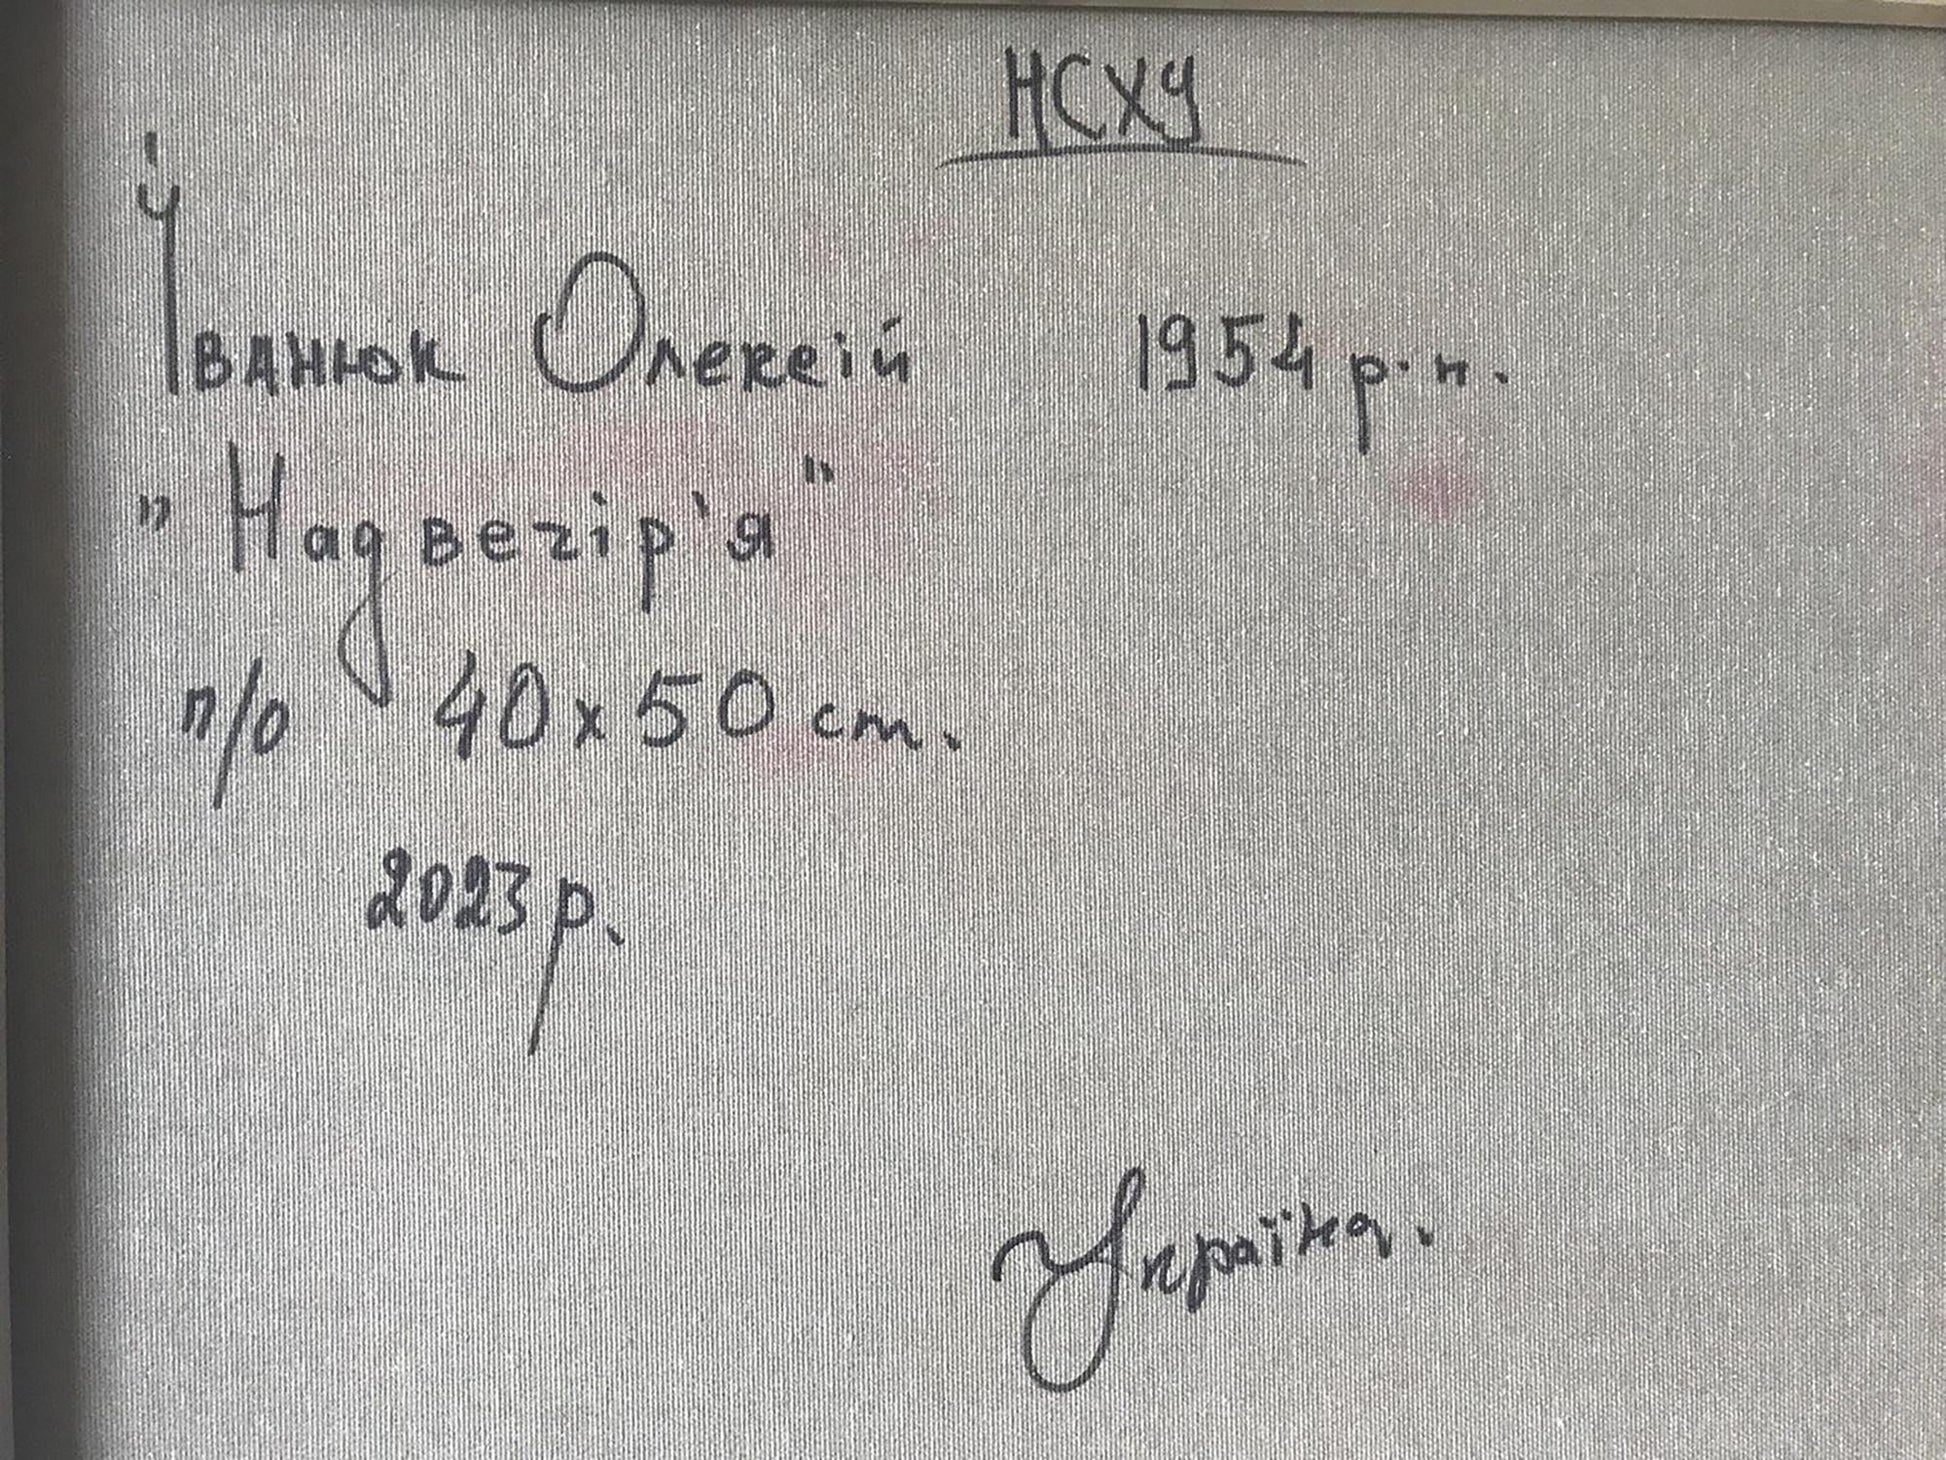 НСХУ
Іванюк Олексій 1954 р.н.
"Надвечір'я"
п/о 40х50 см.
2023р.
Україна.